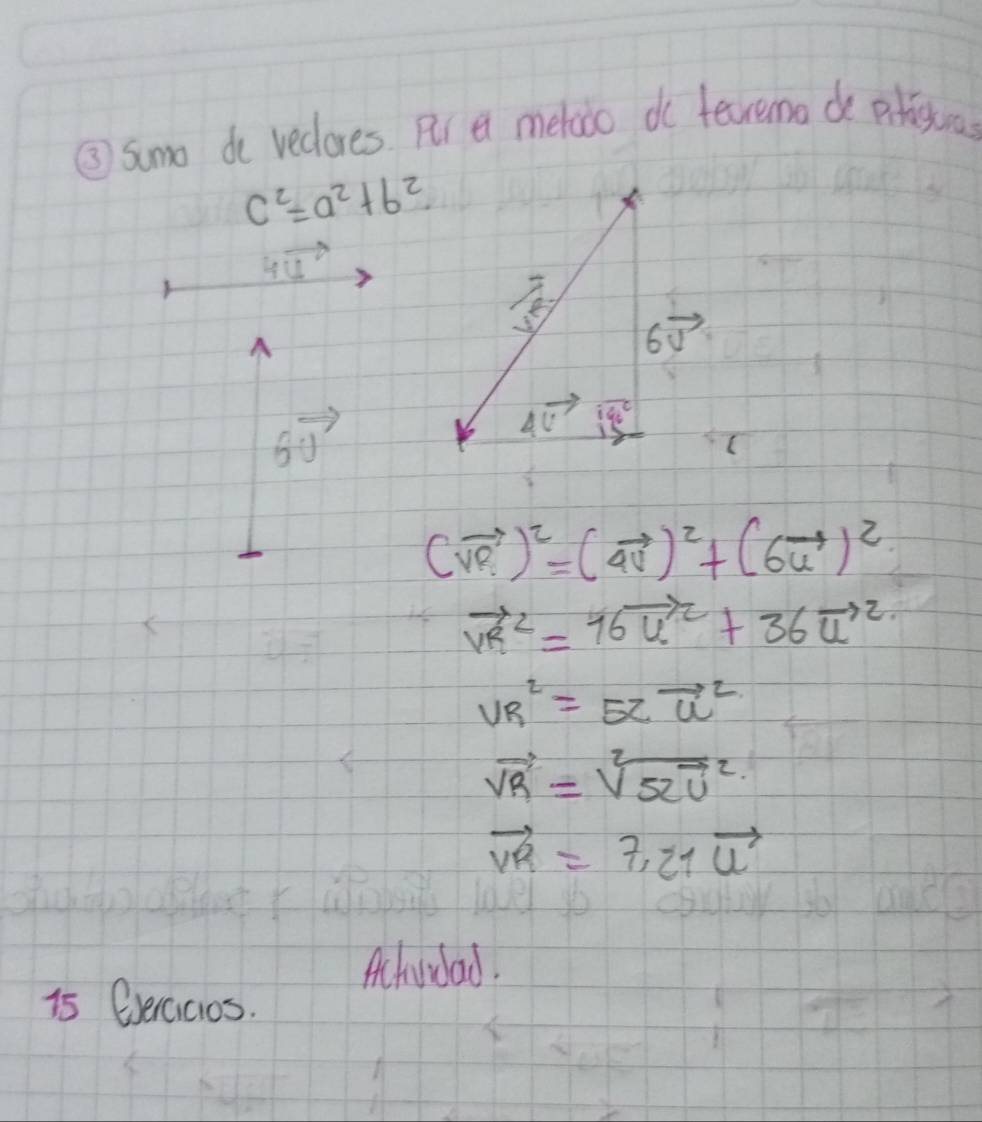 ③ Suma de vectores. Por el metodo de teorema de pitagoras
c² = a² + b².
4u→
6u→
VR→
6u→
4u→
(VR→)² = (4u→)² + (6u→)²
VR→² = 16u→² + 36u→².
VR² = 52u→².
VR→ = ²√52u→².
VR→ = 7,21u→
Actividad.
15 Ejercicios.